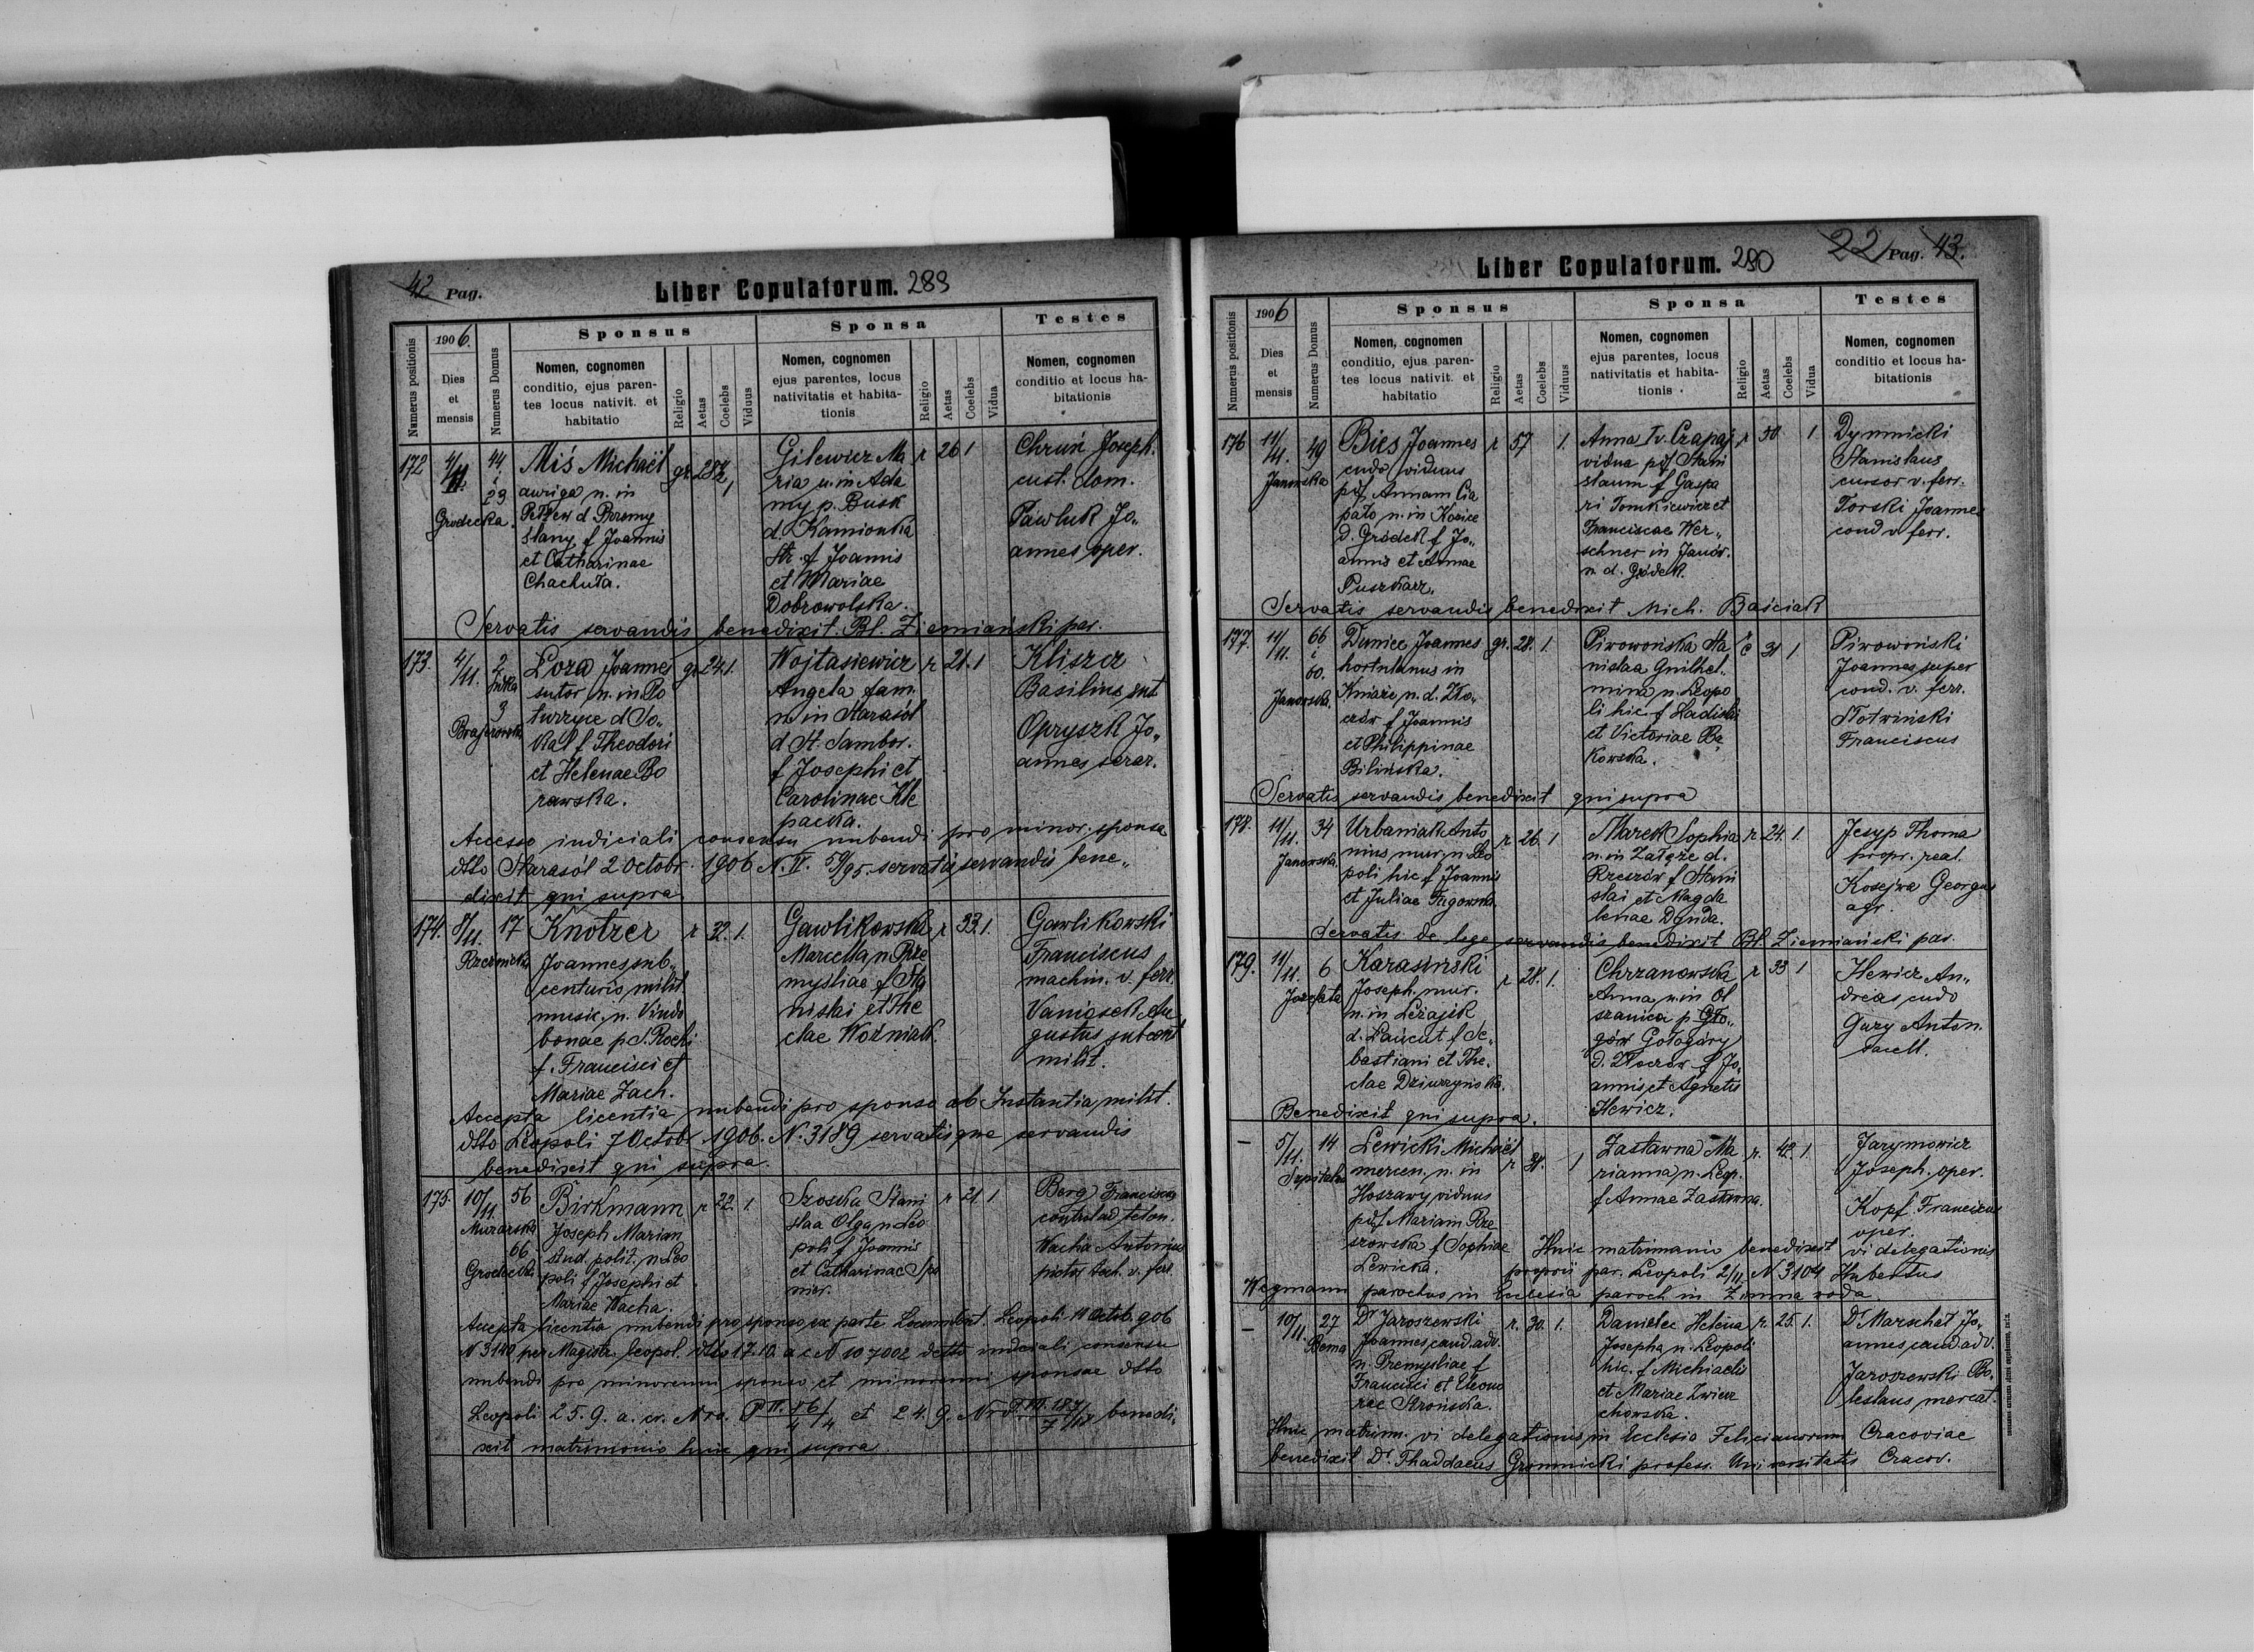 42 Pag.
Liber Copulatorum. 289
Numerus positionis
1906.
Dies
et
mensis
Numerus Domus
Sponsus
Nomen, cognomen
conditio, ejus paren-
tes locus nativit. et
habitatio
Religio
Aetas
Coelebs
Viduus
Sponsa
Nomen, cognomen
ejus parentes, locus
nativitatis et habita-
tionis
Religio
Aetas
Coelebs
Vidua
Testes
Nomen, cognomen
conditio et locus ha-
bitationis
172 4/11
44 i 23
Grodecka.
Miś Michaël
auriga n. in
d Przemy
ślany f Joannis
et Catharinae
Chachuła.
gr 28 1
Gilewicz Ma
ria n. in Ada
my p. Busk
d. Kamionka
Str. f Joannis
et Mariae
Dobrowolska.
r 26 1
Chruń Joseph.
cust. dom.
Pawluk Jo„
annes oper.
Servatis servandis benedixit Bl. Ziemiański par.
173. 4/11.
Łoza Joannes
sutor n. in Po
turzyce d So„
kal f Theodori
et Helenae Bo
rawska.
gr 24 1.
Wojtasiewicz
Angela fam.
n. in Starasól
d St. Sambor.
f Josephi et
Carolinae Kle
packa.
r 21. 1
Kliszcz
Basilius sut
Opryszk Jo„
annes serar.
Accesso iudiciali consensu nubendi pro minor. sponsa
dtto Starasól 2 Octobr. 1906 N. IV. 59/95. servatis servandis bene„
dixit qui supra
174. 8/11. 17
Rzeźnicka
Knotzer
Joannes sub„
centurio milit.
music. n. Vindo
bonae p S. Rochi
f. Francisci et
Mariae Zach.
r 32. 1.
Gawlikowska
Marcella n Prze
mysliae f Sta
nislai et The
clae Woźniak.
r 33. 1.
Gawlikowski
Franciscus
machin. v. ferr.
Vaniasek Au
gustus subcent
milit.
Accepta licentia nubendi pro sponso ab Instantia milit.
dtto Leopoli 7 Octobr. 1906. N. 3189 servatisque servandis
benedixit qui supra.
175. 10/11. 56
Murarska
66
Grodecka
Birkmann
Joseph Marian
stud. polit. n Leo
poli f Josephi et
Mariae Wacha.
r 22. 1.
Szoska Stani
slaa Olga n Leo
poli f Joannis
et Catharinae Spa
nier.
r 21. 1.
Berg Franciscus
control ad telon.
Wacha Antonius
pictor tech. v. fer.
Accepta licentia nubendi pro sponso ex parte Locumtent. Leopoli 11 Octob. 906
N 3140 per Magistr. leopol. dtto 17.10. a c N 107002 detto iudiciali consensu
nubendi pro minorenni sponso et minorenni sponsae dtto
Leopoli 25. 9. a. cr. Nro. et 24. 9. Nro benedi
xit matrimonio huic qui supra
Liber Copulatorum. 280
22 Pag. 43.
Numerus positionis
1906
Dies
et
mensis
Numerus Domus
Sponsus
Nomen, cognomen
conditio, ejus paren-
tes locus nativit. et
habitatio
Religio
Aetas
Coelebs
Viduus
Sponsa
Nomen, cognomen
ejus parentes, locus
nativitatis et habita-
tionis
Religio
Aetas
Coelebs
Vidua
Testes
Nomen, cognomen
conditio et locus ha-
bitationis
176 11/11. 49
Janowska
Bies Joannes
cudo viduus
p/f Annam Cia
pało n. in Korice
d. Gródek f Jo„
annis et Annae
Puszkarz.
r 57 1.
Anna Iv. Czapaj
vidua p/f Stani
slaum f Gaspa
ri Tomkiewicz et
Franciscae Wer„
schner in Janów.
n. d. Gródek.
r 50 1
Dymnicki
Stanislaus
cursor v. ferr.
Torski Joannes
cond v. ferr.
Servatis servandis benedixit Mich. Baściak
177. 11/11. 66 i 60.
Janowska.
Duniec Joannes
hortulanus in
Kniaże n. d. Zło„
czów f Joannis
et Philippinae
Bilińska.
gr. 28. 1.
Piwowońska Sta
nislaa Guilhel„
mina n. Leopo
li hic f Ladislai
et Victoriae Bą
kowska.
31 1
Piwowoński
Joannes super
cond. v. ferr.
Słotwiński
Franciscus
Servatis servandis benedixit qui supra
178. 11/11. 34
Janowska
Urbaniak Anto
nius mur. n. Leo
poli hic f Joannis
et Juliae Fugowska.
r 26. 1
Marek Sophia
n. in Załęże d.
Rzeszów f Stani
slai et Magda
lenae Dęnda.
r. 24. 1.
Jesyp Thoma
propr. real.
Kosejwa Georgius
agr.
Servatis de lege servandis benedixit Bl. Ziemiański par.
179. 11/11. 6
Jozefata
Karasiński
Joseph. mur.
n. in Leżajsk
d. Łańcut f Se„
bastiani et The„
clae Dziurzyńska.
r 28. 1.
Chrzanowska
Anna n. in Ol
szanica p Gło„
gów Gołogóry
d. Złoczów f Jo„
annis et Agnetis
Hewicz.
r 33 1
Hewicz An„
dreas cudo
Gury Anton.
sacell.
Benedixit qui supra.
— 5/11. 14
Szpitalna
Lewicki Michaël
mercen. n. in
Hoszawy viduus
p/f Mariam Rze
szowska f Sophiae
Lewicka.
r 31. 1
Zastawna Ma
rianna n. Leop.
f Annae Zastawna.
r. 42. 1.
Jarymowicz
Joseph. oper.
Kopf Franciscus
oper.
Huic matrimonio benedixit vi delegationis
proprii par. Leopoli 2/11. N 3104 Hubertus
Wegmann parochus in Ecclesia paroch in Zimna woda.
— 10/11. 27
Bema
Dr Jaroszewski
Joannes cand adv.
n. Premysliae f
Francisci et Eleono
rae Strońska.
r. 30. 1.
Danielec Helena
Josepha n. Leopoli
hic. f Michaelis
et Mariae Zwierz
chowska.
r. 25. 1.
Dr Marschał Jo„
annes cand adv.
Jaroszewski Bo„
leslaus mercat.
Huic matrim. vi delegationis in Ecclesia Felicianorum Cracoviae
benedixit Dr. Thaddaeus Gromnicki profess. Universitatis Cracov.